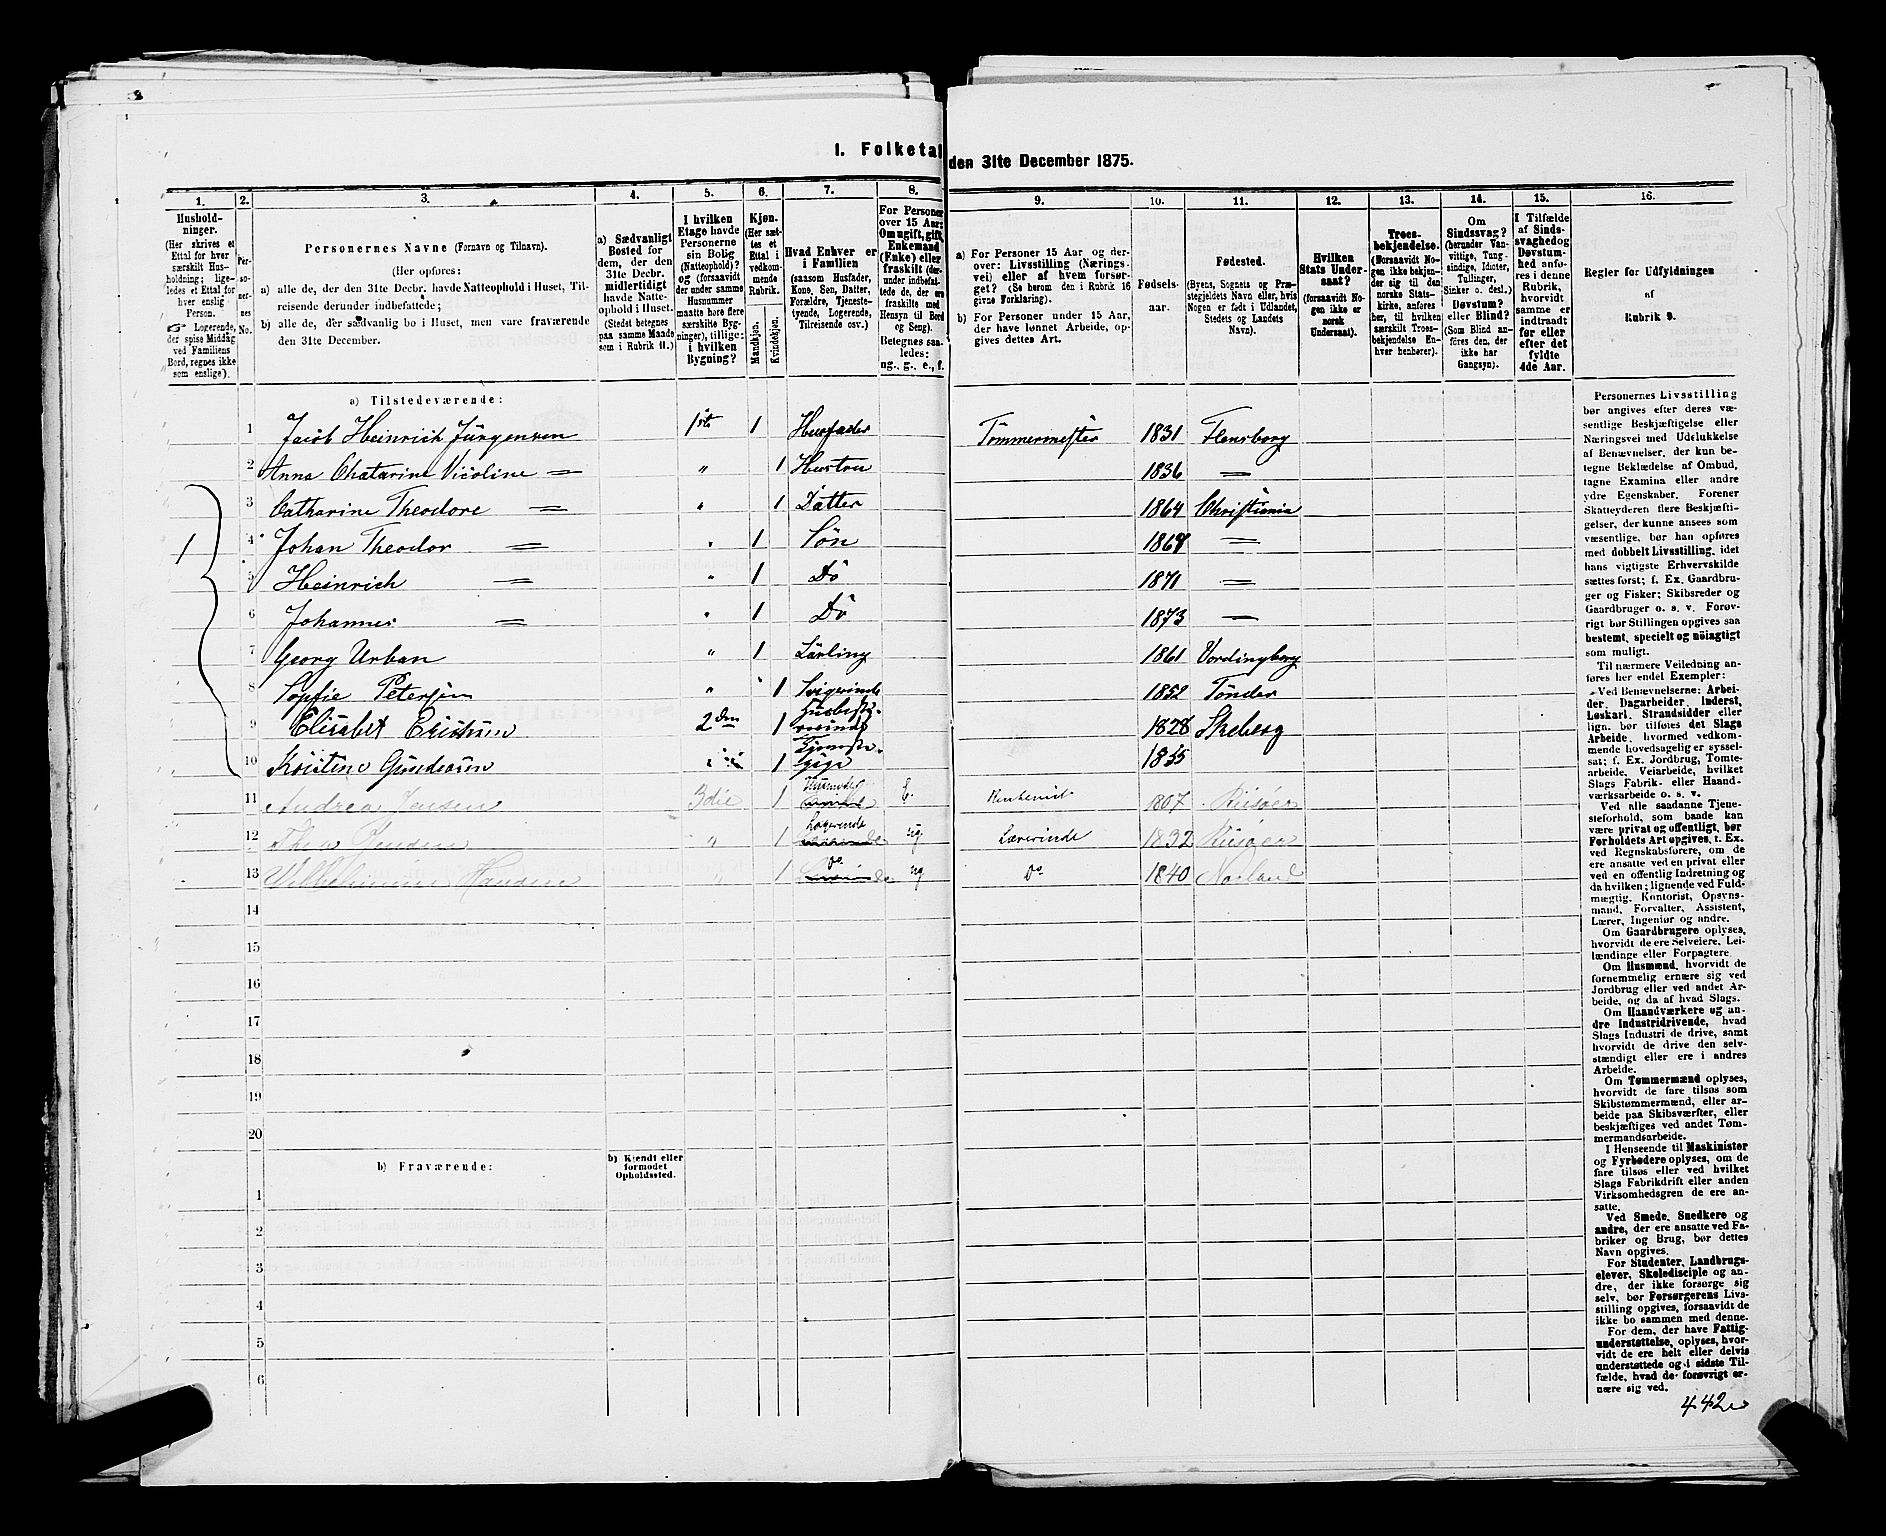 I. Folketal den 31te December 1875.
1. 2. 3. 4. 5. 6. 7. 8. 9. 10. 11. 12. 13. 14. 15. 16.
Husholdninger.
(Her skrives et Ettal for hver særskilt Husholdning; ligeledes et Ettal for hver enslig Person.
☞ Logerende, der spise Middag ved Familiens Bord, regnes ikke som enslige).
Personernes No.
Personernes Navne (Fornavn og Tilnavn).
(Her opføres:
a) alle de, der den 31te Decbr. havde Natteophold i Huset, Tilreisende derunder indbefattede;
b) alle de, der sædvanlig bo i Huset, men vare fraværende den 31te December.
a) Sædvanligt Bosted for dem, der den 31te Decbr. midlertidigt havde Natteophold i Huset. (Stedet betegnes paa samme Maade som i Rubrik 11.)
I hvilken Etage havde Personerne sin Bolig (Natteophold)? og (forsaavidt der under samme Husnummer maatte høre flere særskilte Bygninger), tillige: i hvilken Bygning?
Kjøn. (Her sættes et Ettal i vedkommende Rubrik.
Mandkjøn. Kvindekjøn.
Hvad Enhver er i Familien (saasom Husfader, Kone, Søn, Datter, Forældre, Tjenestetyende, Logerende, Tilreisende osv.)
For Personer over 15 Aar: Om ugift, gift, Enkemand (Enke) eller fraskilt (derunder indbefattede de, der ere fraskilte med Hensyn til Bord og Seng). Betegnes saaledes: ug., g., e., f.
a) For Personer 15 Aar og derover: Livsstilling (Næringsvei) eller af hvem forsørget? (Se herom den i Rubrik 16 givne Forklaring).
b) For Personer under 15 Aar, der have lønnet Arbeide, opgives dettes Art.
Fødselsaar.
Fødested.
(Byens, Sognets og Præstegjeldets Navn eller, hvis Nogen er født i Udlandet, Stedets og Landets Navn).
Hvilken Stats Undersaat? (forsaavidt Nogen ikke er norsk Undersaat).
Troesbekjendelse. (Forsaavidt Nogen ikke bekjender sig til den norske Statskirke, anføres her, til hvilken særskilt Troesbekjendelse Enhver henhører).
Om Sindssvag? (herunder Vanvittige, Tungsindige, Idioter, Tullinger, Sinker o. desl.). Døvstum? eller Blind? (Som Blind anføres den, der ikke har Gangsyn).
I Tilfælde af Sindssvaghed og Døvstumhed anføres i denne Rubrik, hvorvidt samme er indtraadt før eller efter det fyldte 4de Aar.
Regler for Udfyldningen af Rubrik 9.
a) Tilstedeværende:
1 Jacob Heinrich Jürgensen 1ste 1 Husfader Tømmermester 1831 Flensborg
2 Anna Chatarine Nicoline = " 1 Hustru 1836 =
3 Catharine Theodore = " 1 Datter 1864 Christiania
1
4 Johan Theodor = " 1 Søn 1868 =
5 Heinrich = " 1 Do 1871 =
6 Johannes = " 1 Do 1873 =
7 Georg Urban " 1 Lärling 1861 Vordingborg
8 Sopfie Petersen " 1 1852 Tönder
9 Elisabet 2den 1 1828
10 Kristine Gundersen 1 1855
11 Andrea Jensen 3die 1 E. 1807 Riisöer
12 Thea Jensen " 1 Logerende ug Lærerinde 1832 Riisöer
13 Vilhelmine Hansen " 1 Do ug Do 1840 Norland
14
15
16
17
18
19
20
b) Fraværende: b) Kjendt eller formodet Opholdssted.
1
2
3
4
5
6
Personernes Livsstilling
bør angives efter deres væ-
sentlige Beskjæftigelse eller
Næringsvei med Udelukkelse
af Benævnelser, der kun be-
tegne Beklædelse af Ombud,
tagne Examina eller andre
ydre Egenskaber. Forener
Skatteyderen flere Beskjæfti-
gelser, der kunne ansees som
væsentlige, bør han opføres
med dobbelt Livsstilling, idet
hans vigtigste Erhvervskilde
sættes først; f. Ex. Gaardbru-
ger og Fisker; Skibsreder og
Gaardbruger o. s. v. Forøv-
rigt bør Stillingen opgives saa
bestemt, specielt og nøiagtigt
som muligt.
Til nærmere Veiledning an-
føres her endel Exempler:
Ved Benævnelserne: Arbei-
der, Dagarbeider, Inderst,
Løskarl, Strandsidder eller
lign. bør tilføies det Slags
Arbeide, hvormed vedkom-
mende hovedsagelig er syssel-
sat; f. Ex. Jordbrug, Tomte-
arbeide, Veiarbeide, hvilket
Slags Fabrik- eller Haand-
værksarbeide o. s. v.
Ved alle saadanne Tjene-
steforhold, som baade kan
være privat og offentligt, bør
Forholdets Art opgives, t. Ex.
ved Regnskabsførere, om de
ere ansatte ved en privat eller
ved en offentlig Indretning og
da hvilken; lignende ved Fuld-
mægtig, Kontorist, Opsyns-
mand, Forvalter, Assistent,
Lærer, Ingeniør og andre.
Om Gaardbrugere oplyses,
hvorvidt de ere Selveiere, Lei-
lændinge eller Forpagtere.
Om Husmænd, hvorvidt de
fornemmelig ernære sig ved
Jordbrug eller ved andet Ar-
beide, og da af hvad Slags.
Om Haandværkere og an-
dre Industridrivende, hvad
Slags Industri de drive, samt
hvorvidt de drive den selv-
stændigt eller ere i andres
Arbeide.
Om Tømmermænd oplyses,
hvorvidt de fare tilsøs som
Skibstømmermænd, eller ar-
beide paa Skibsværfter, eller
beskjæftiges ved andet Tøm-
mermandsarbeide.
I Henseende til Maskinister
og Fyrbødere oplyses, om de
fare tilsøs eller ved hvilket
Slags Fabrikdrift eller anden
Virksomhedsgren de ere an-
satte.
Ved Smede, Snedkere og
andre, der ere ansatte ved Fa-
briker og Brug, bør dettes
Navn opgives.
For Studenter, Landbrugs-
elever, Skoledisciple og an-
dre, der ikke forsørge sig
selv, bør Forsørgerens Livs-
stilling opgives, forsaavidt de
ikke bo sammen med denne.
For dem, der have Fattig-
understøttelse, oplyses, hvor-
vidt de ere helt eller delvis
understøttede og i sidste Til-
fælde, hvad de forøvrigt er-
nære sig ved.
442